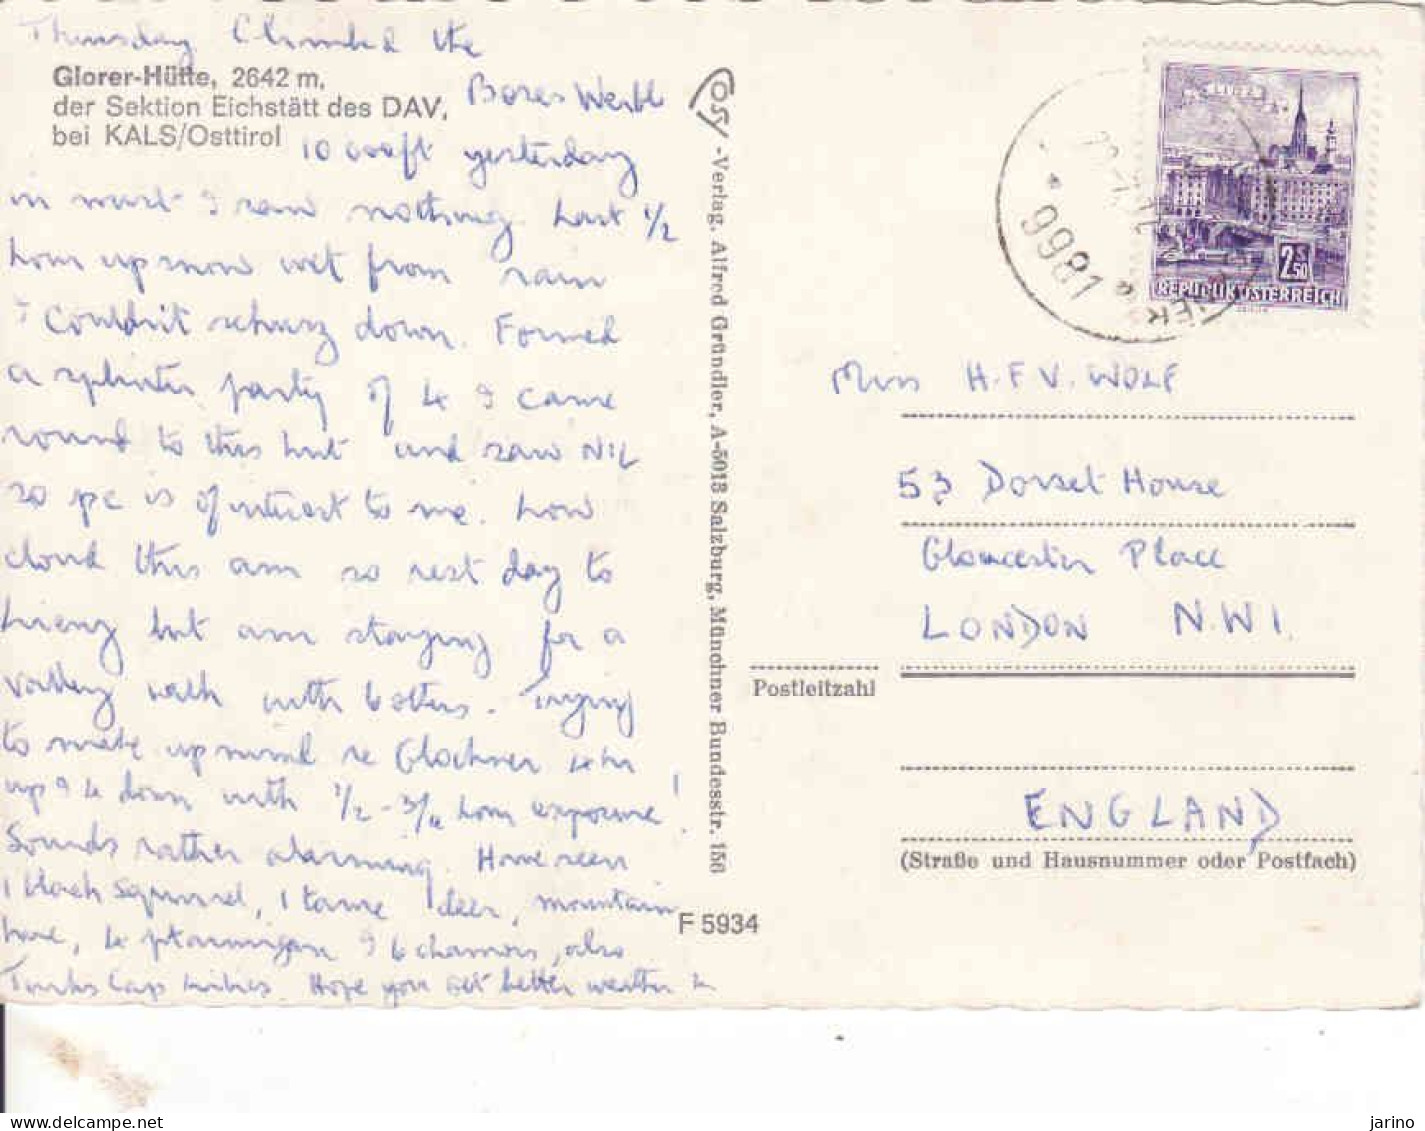 Thursday Climbed the
Glorer-Hütte, 2642 m,
der Sektion Eichstätt des DAV,
bei KALS/Osttirol
Boses Weibl
10 000ft yesterday
in mist & saw nothing last 1/2
hour up snow wet from rain
& couldn't down. Formed
a splinter party of 4 & came
round to this hut and saw NIL
so pc is of interest to me. Low
cloud this am so rest day to
Lienz but am staying for a
valley walk with 6 others. Trying
to make up mind re Glockner 4 hr
up & 4 down with 1/2 - 3/4 hour exposure!
Sounds rather alarming. Have seen
1 black squirrel, 1 tame deer, mountain
hare, 4 ptarmigan & 6 chamois, also
Turks Cap lilies. Hope you get better weather
Verlag, Alfred Gründler, A-5013 Salzburg, Münchner Bundesstr. 156
F 5934
LINZ
2.50
REPUBLIK ÖSTERREICH
9981
Miss H.F.V. WOLF
53 Dorset House
Gloucester Place
LONDON N.W.1.
Postleitzahl
ENGLAND
(Straße und Hausnummer oder Postfach)
delcampe.net
jarino